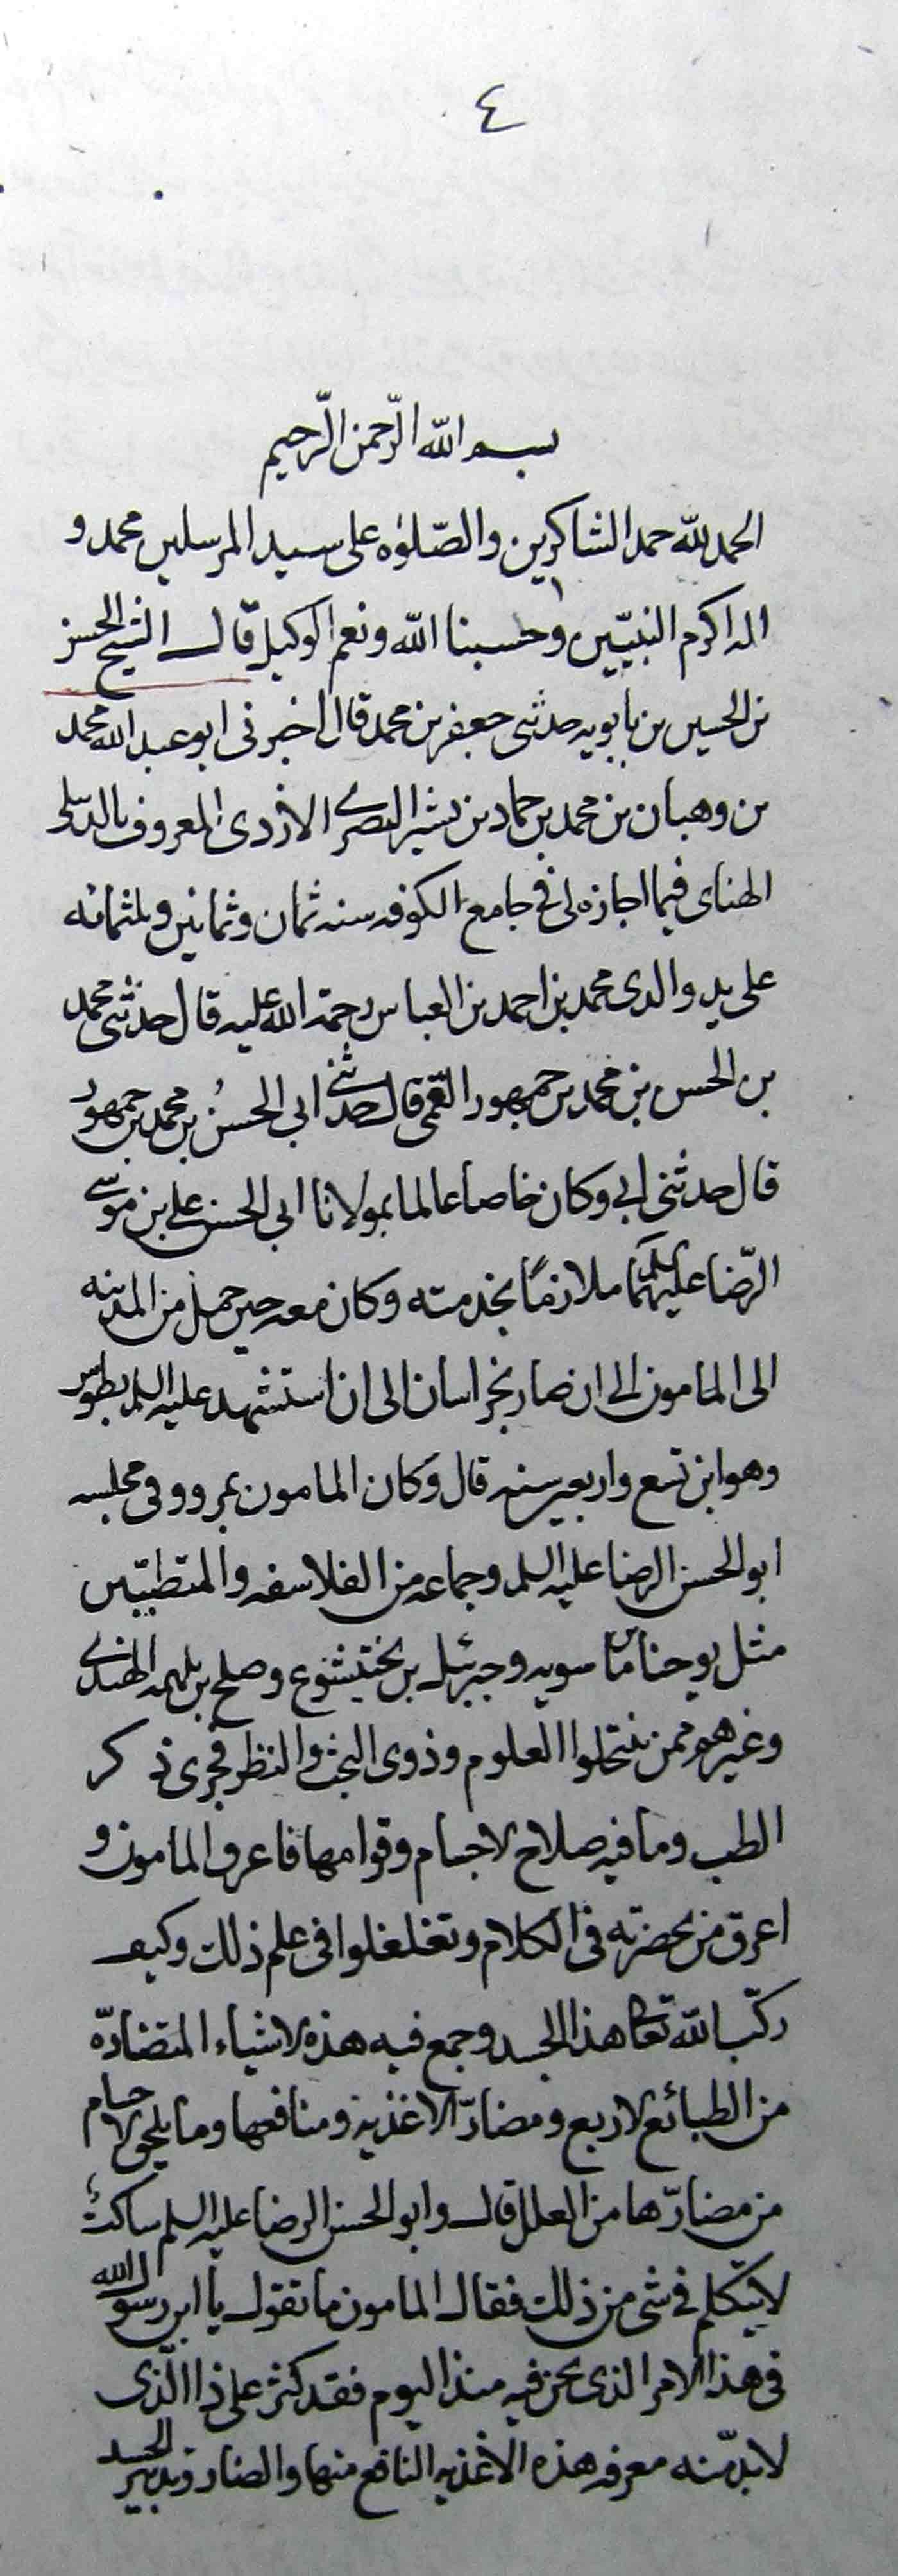 ٤
بسم الله الرّحمن الرّحيم
الحمد لله حمد الشاكرين والصّلوة على سيد المرسلين محمد و
اله اكرم النبيّين وحسبنا الله ونعم الوكيل قال الشيخ الحسن
بن الحسين بن بابويه حدثنى جعفر بن محمد قال اخبرنى ابو عبد الله محمد
بن وهبان بن محمد بن حماد بن بشير البصرى الازدى المعروف بالدبيلى
الهناى فيما اجازه لى فى جامع الكوفه سنه ثمان وثمانين وثلثمائه
على يد والدى محمد بن احمد بن العباس رحمة الله عليه قال حدثنى محمد
بن الحسن بن محمد بن جمهور القمى قال حدثنى ابى الحسن بن محمد بن جمهور
قال حدثنى ابى وكان خاصا عالما بمولانا ابى الحسن على بن موسى
الرّضا عليهما السلم ملازمًا بخدمته وكان معه حين حمل من المدينه
الى المامون الى ان صار بخراسان الى ان استشهد عليه السلم بطوس
وهو ابن تسع واربعين سنه قال وكان المامون بمرو وفى مجلسه
ابو الحسن الرضا عليه السلم وجماعه من الفلاسفه والمتطببّين
مثل يوحنا بن ماسويه وجبرئيل بن بختيشوع وصلح بن بلهمه الهندى
وغيرهم ممن ينتحلوا العلوم وذوى البحث والنظر فجرى ذكر
الطب وما فيه صلاح الاجسام وقوامها فاعرق المامون و
اعرق من بحضرته فى الكلام وتغلغلوا فى علم ذلك وكيف
ركّب الله تعالى هذا الجسد وجمع فيه هذه الاشياء المتضادّه
من الطبائع الاربع ومضارّ الاغذيه ومنافعها وما يلحق الاجسام
من مضارّها من العلل قال وابو الحسن الرضا عليه السلم ساكت
لا يتكلم فى شى من ذلك فقال المامون ما تقول يا ابن رسول الله
فى هذا الامر الذى نحن فيه منذ اليوم فقد كثر على ذا الّذى
لا بدّ منه معرفه هذه الاغذيه النافع منها والضار وتدبير الجسد